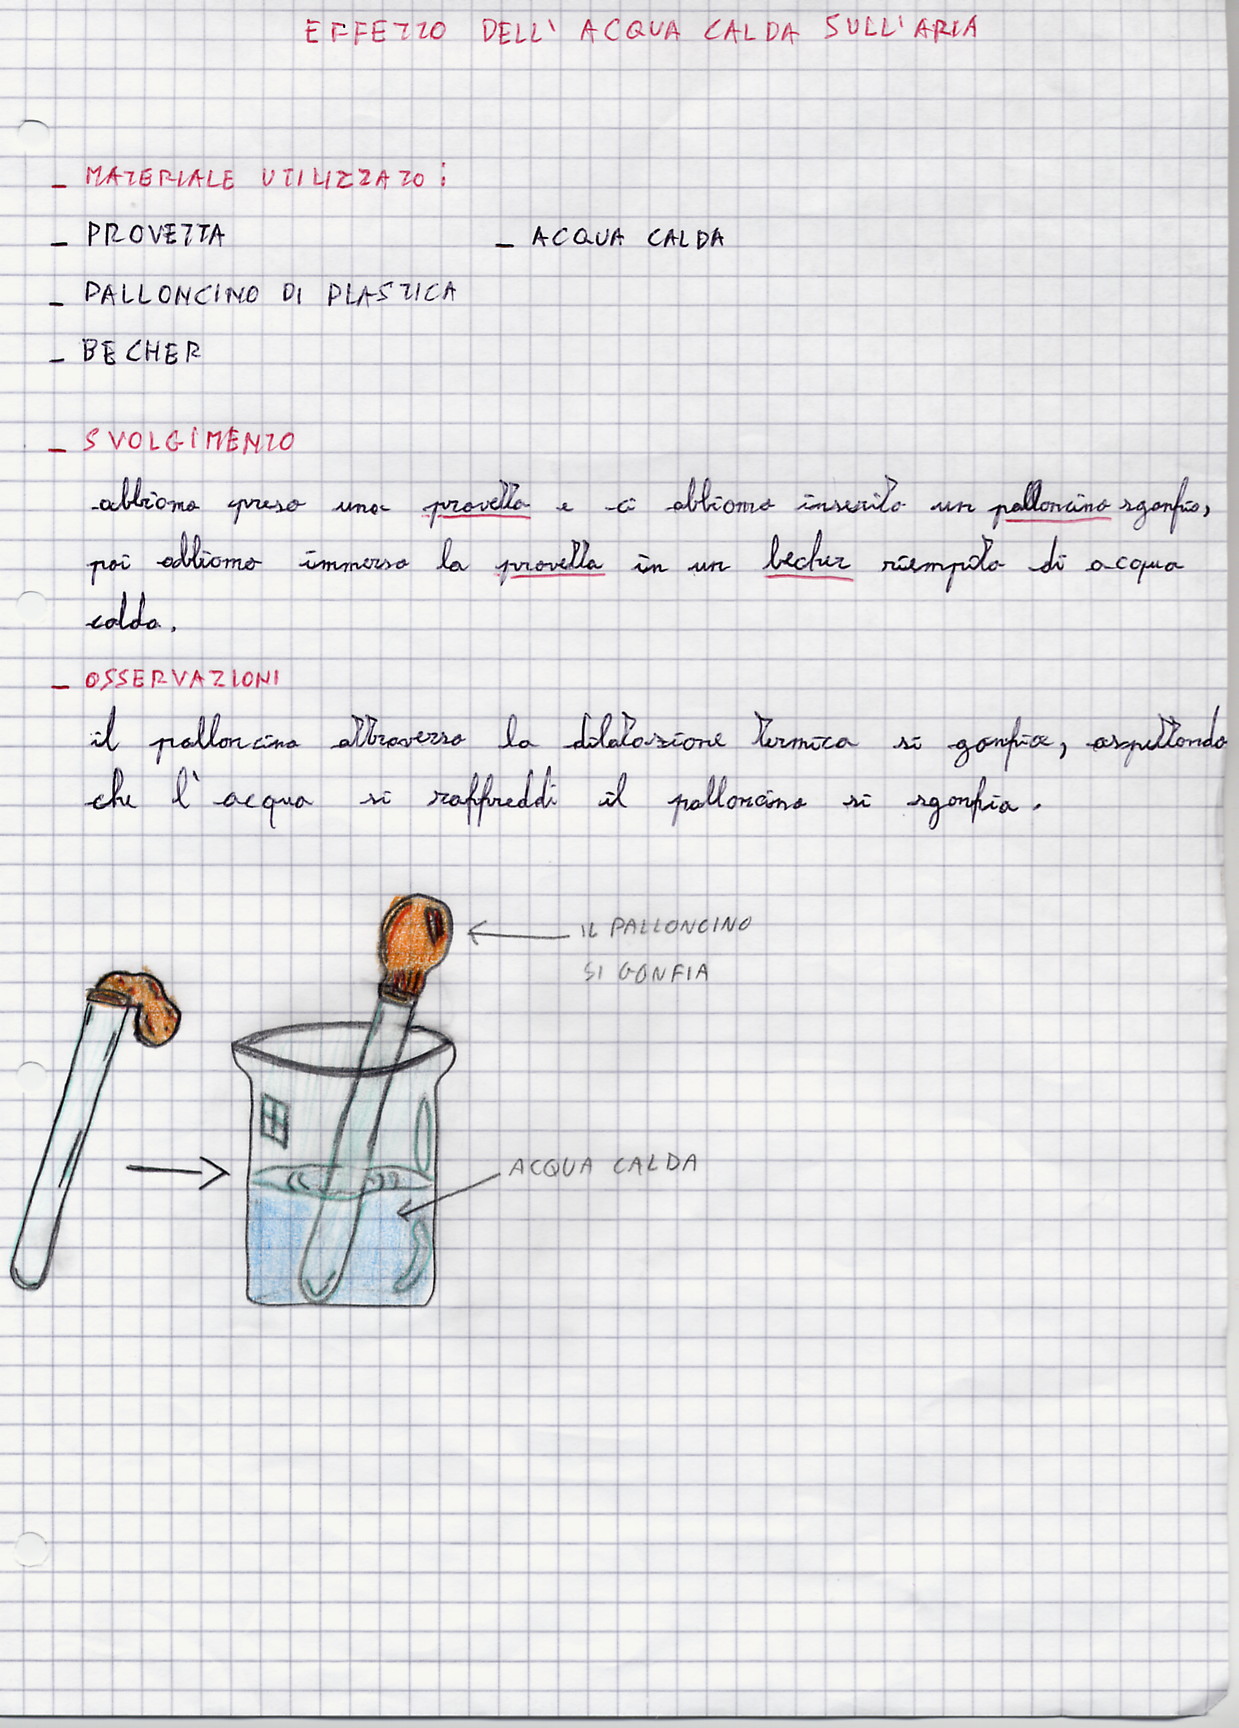 EFFETTO DELL' ACQUA CALDA SULL'ARIA
- MATERIALE UTILIZZATO:
- PROVETTA - ACQUA CALDA
- PALLONCINO DI PLASTICA
- BECHER
- SVOLGIMENTO
abbiamo preso una provetta e ci abbiamo inserito un palloncino sgonfio,
poi abbiamo immerso la provetta in un becher riempito di acqua
calda.
- OSSERVAZIONI
il palloncino attraverso la dilatazione termica si gonfia, aspettando
che l'acqua si raffreddi il palloncino si sgonfia.
IL PALLONCINO
SI GONFIA
ACQUA CALDA